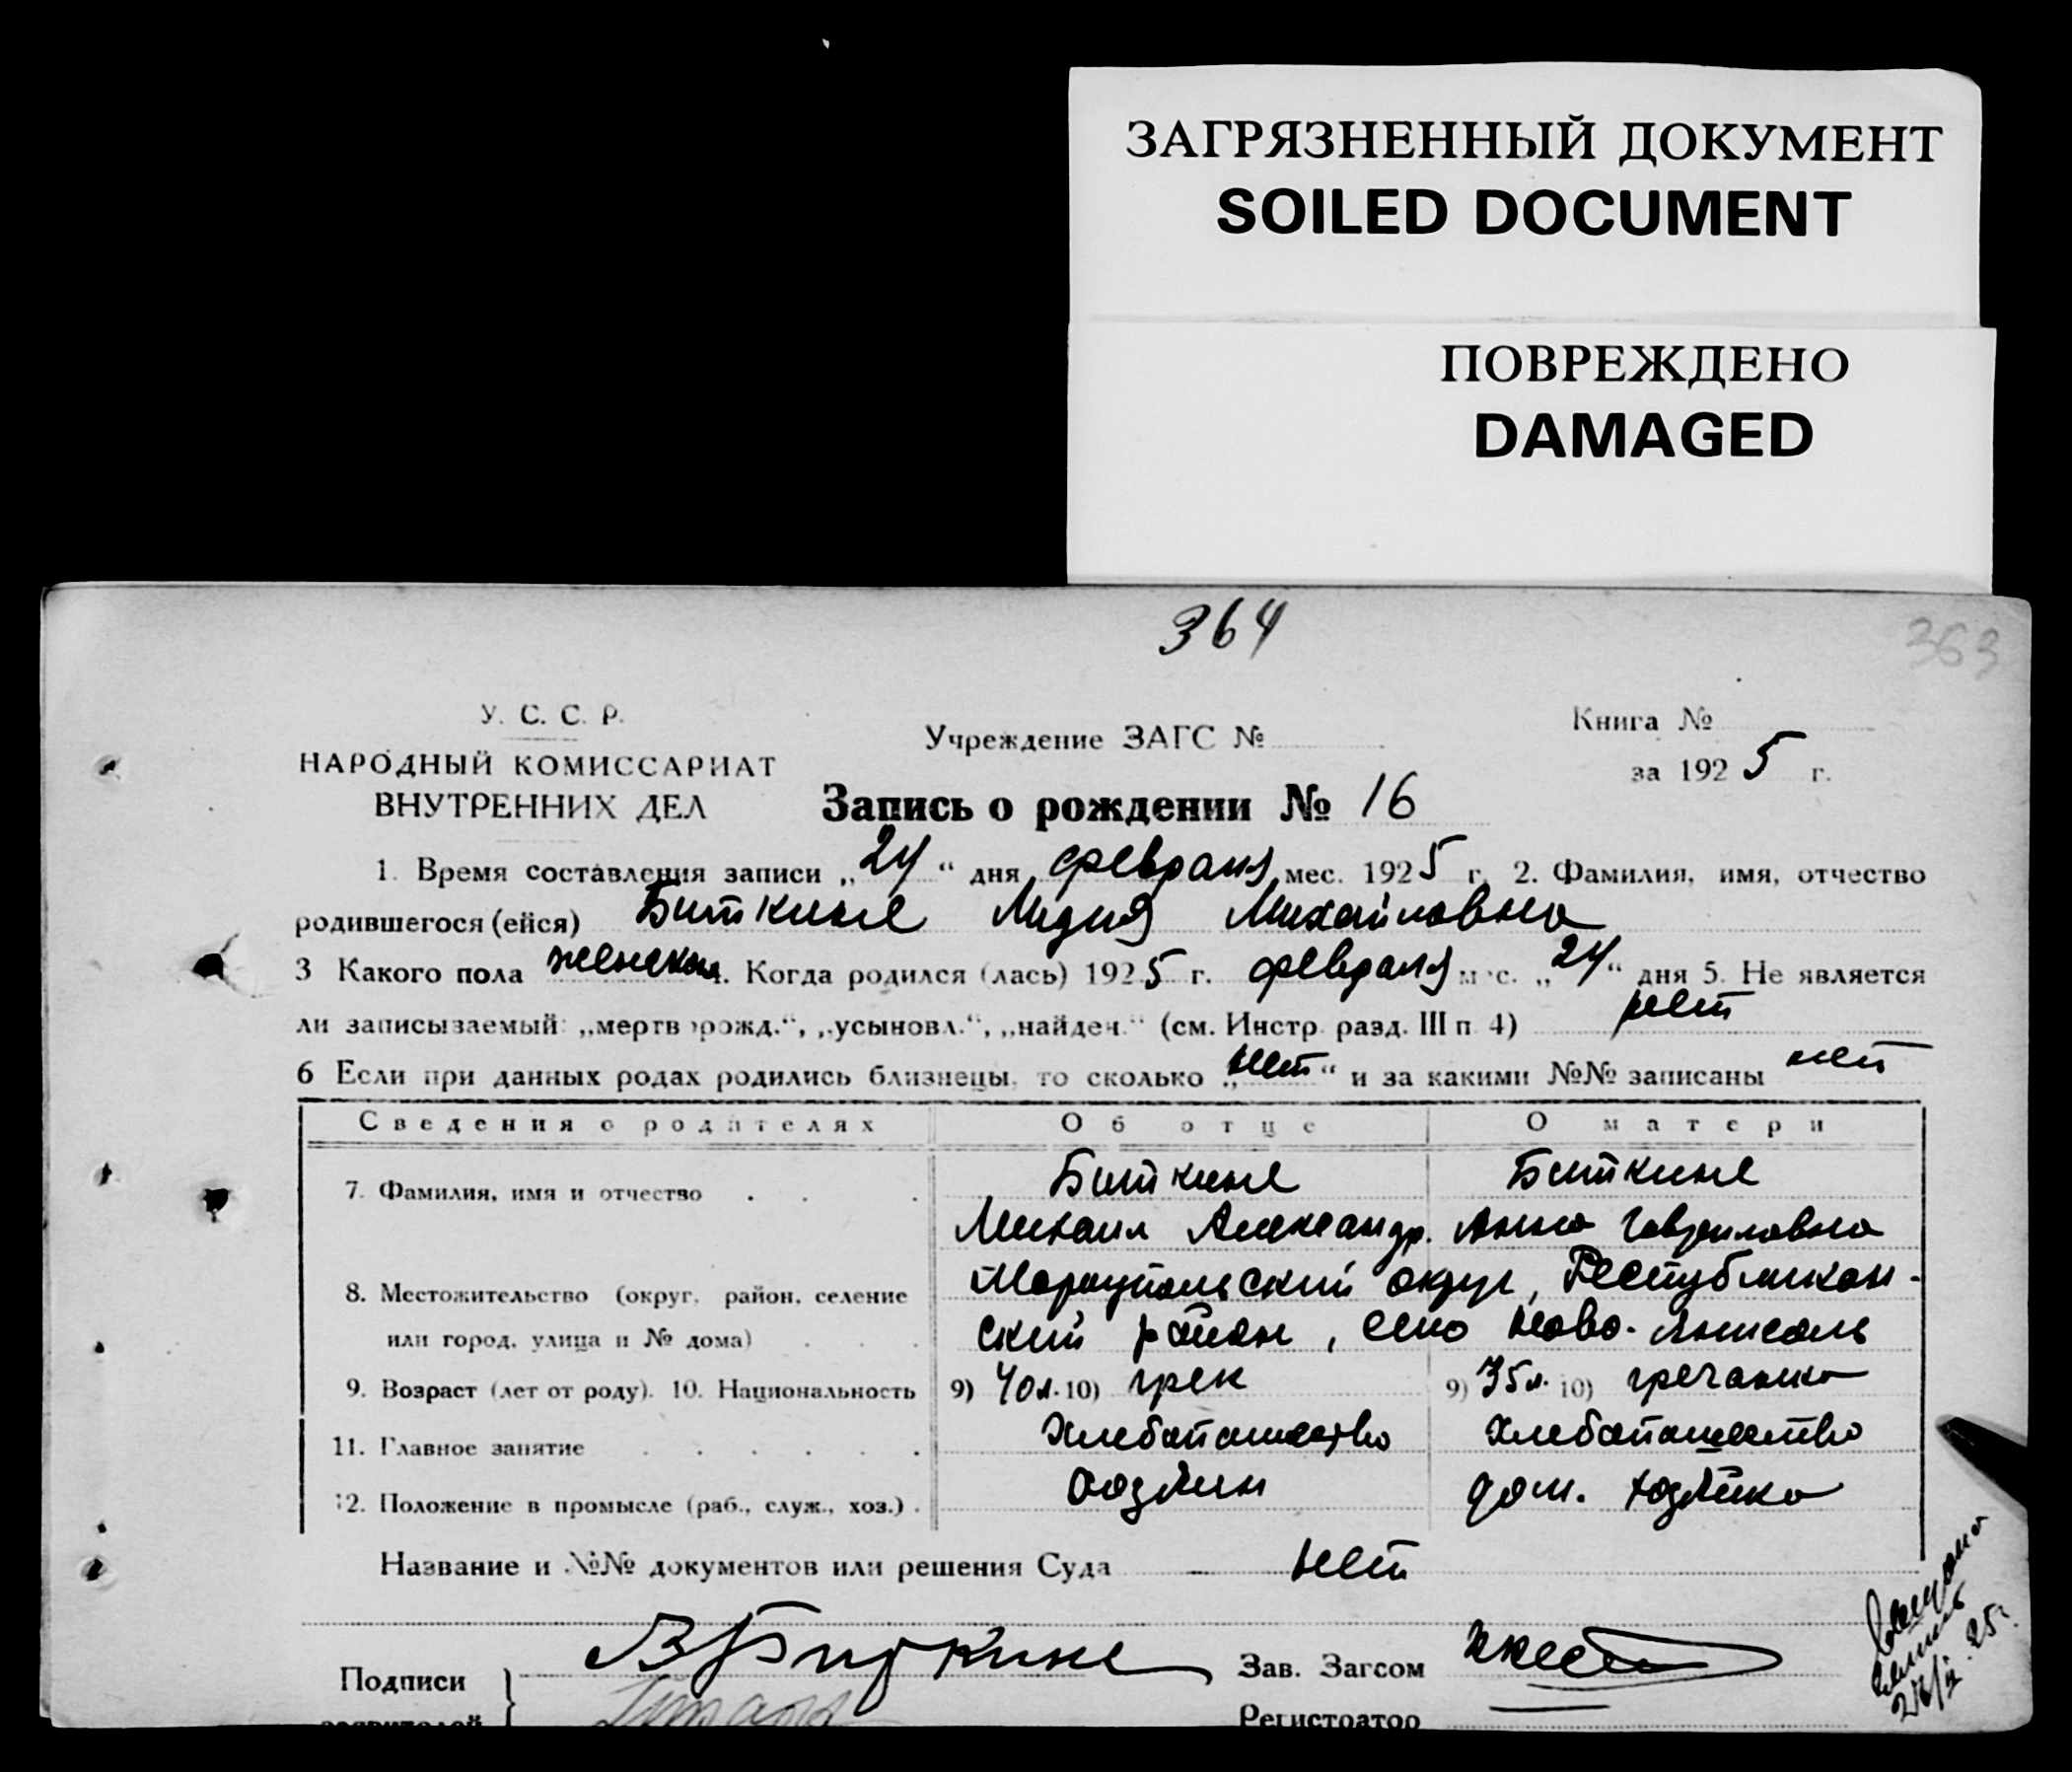 ЗАГРЯЗНЕННЫЙ ДОКУМЕНТ
SOILED DOCUMENT
ПОВРЕЖДЕНО
DAMAGED
364
363
У. С. С. Р.
НАРОДНЫЙ КОМИССАРИАТ
ВНУТРЕННИХ ДЕЛ
Учреждение ЗАГС №
Книга №
за 1925 г.
Запись о рождении № 16
1. Время составления записи „24“ дня февраля мес. 1925 г. 2. Фамилия, имя, отчество
родившегося (ейся) Биткине Лидия Михайловна
3 Какого пола женскаи. Когда родился (лась) 1925 г. февраля мес. „24“ дня 5. Не является
ли записываемый „мертворожд.“, „усыновл.“, „найден.“ (см. Инстр. разд. III п 4) нет
6 Если при данных родах родились близнецы, то сколько „нет“ и за какими №№ записаны нет
Сведения о родителях Об отце О матери
7. Фамилия, имя и отчество . . . Биткине Биткине
Михаил Александр. Анна Гавриловна
8. Местожительство (округ, район, селение Мариупольский округ, Республикан-
или город, улица и № дома) . . . ский район, село Ново-Янисоль
9. Возраст (лет от роду). 10. Национальность 9) 40 л. 10) грек 9) 35 л. 10) гречанка
11. Главное занятие . . . . . . Хлебопашество Хлебопашество
12. Положение в промысле (раб., служ., хоз.) . дом.
Название и №№ документов или решения Суда нет
Подписи } Биткине Зав. Загсом
заявителей Регистратор